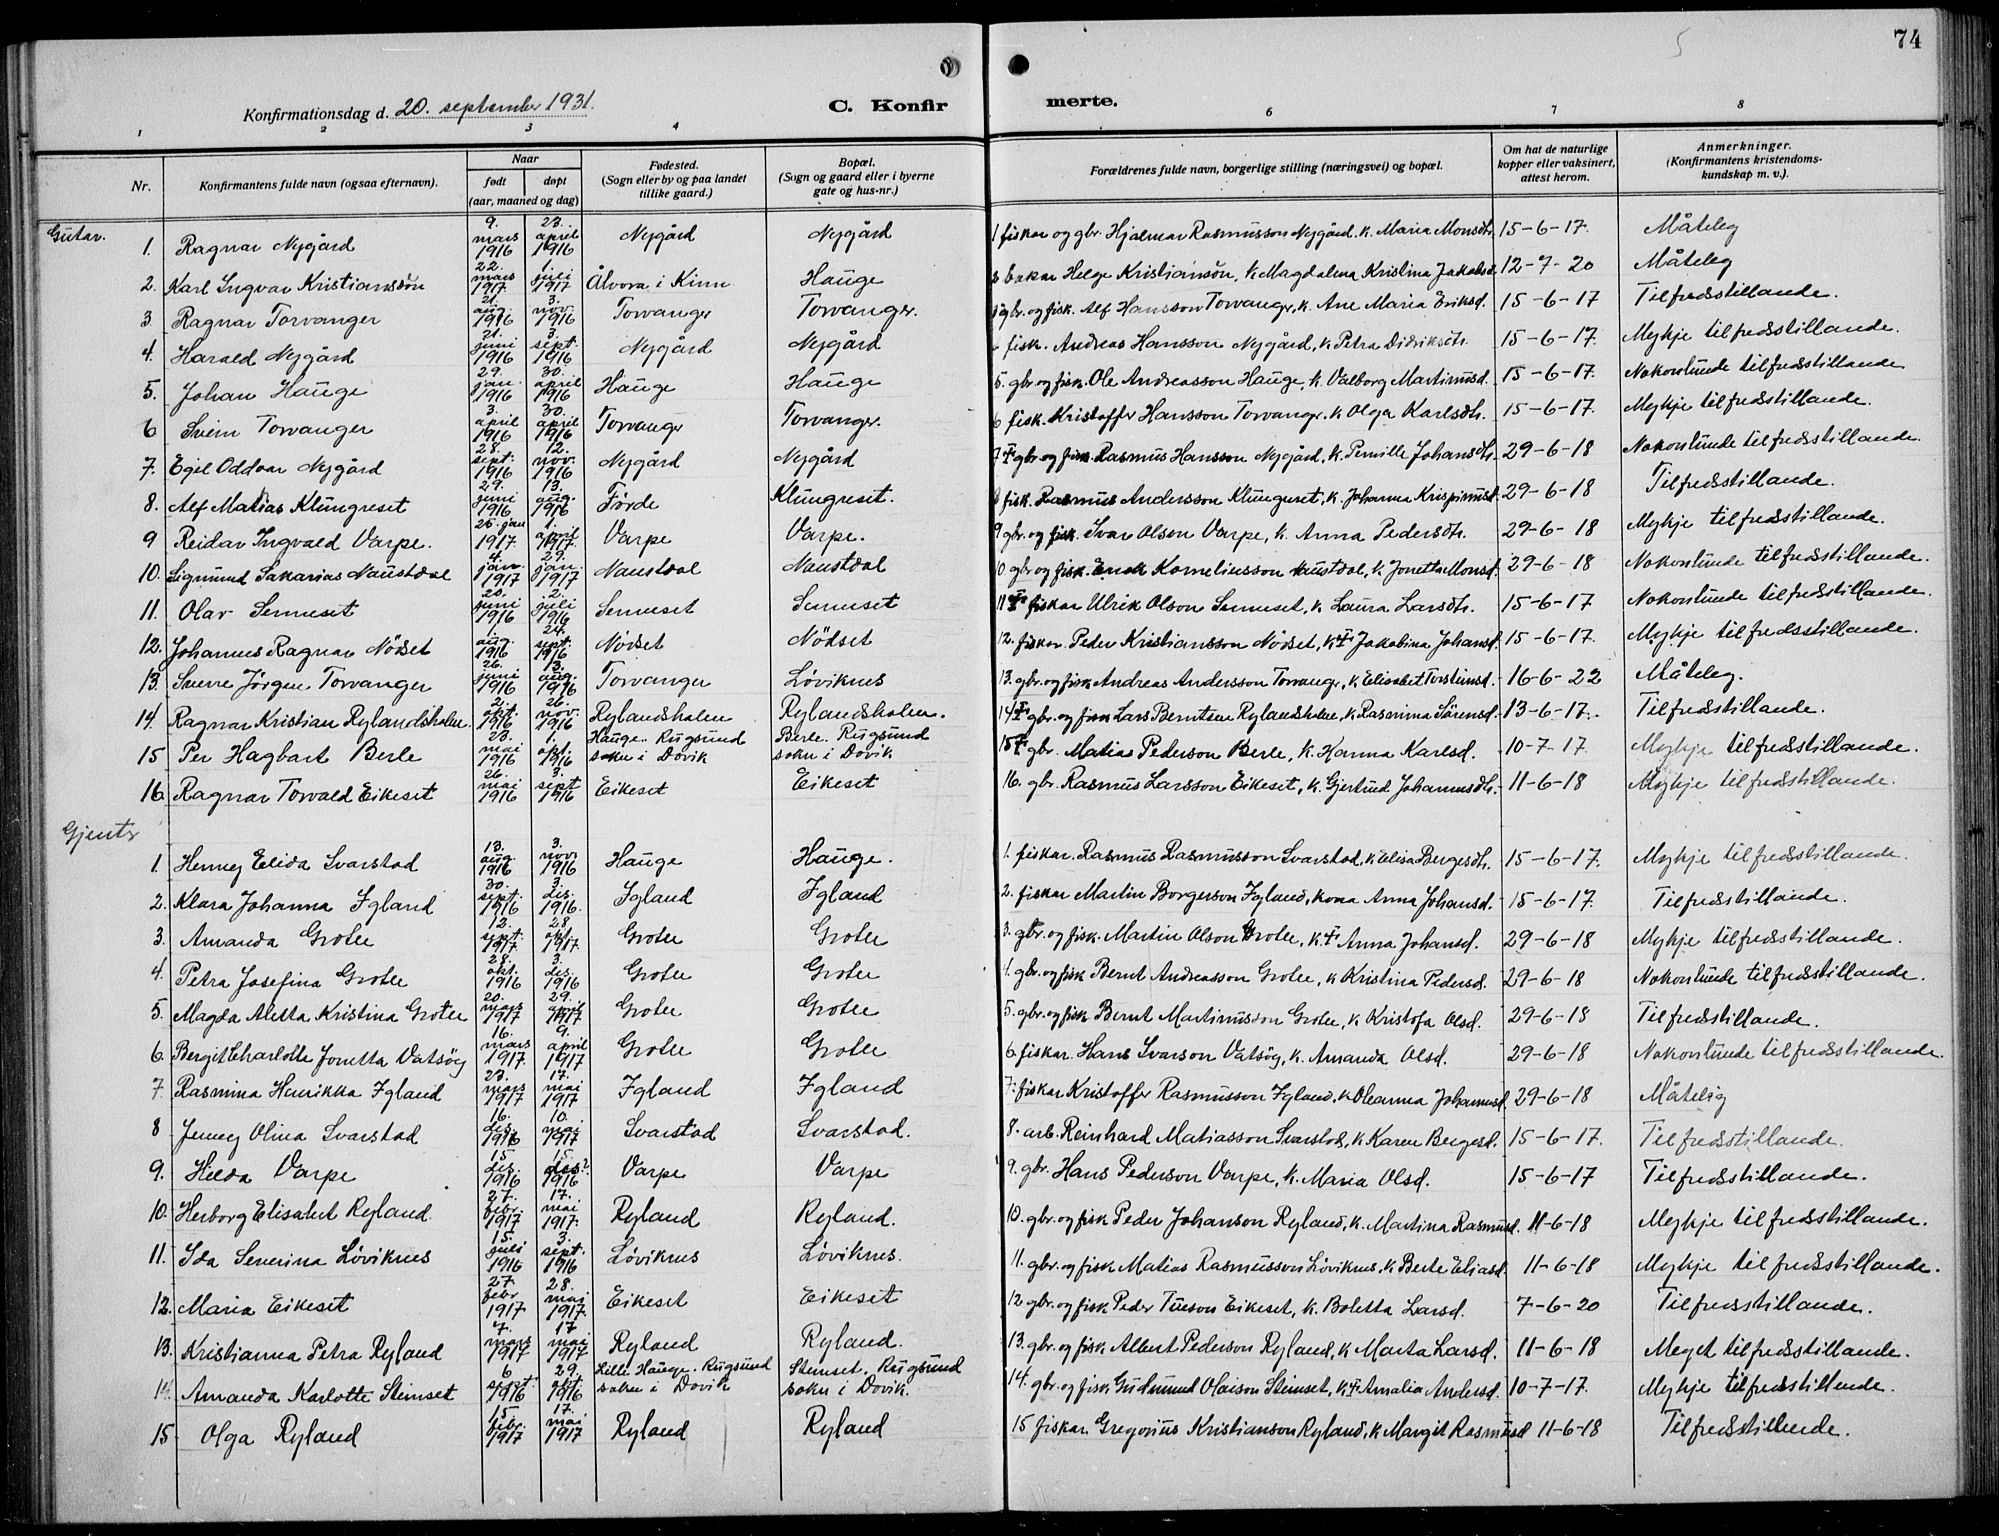 74
5
Konfirmationsdag d. 20. september 1931.
C. Konfir merte.
1 2 3 4 6 7 8
Nr.
Konfirmantens fulde navn (ogsaa efternavn).
Naar
født døpt
(aar, maaned og dag)
Fødested.
(Sogn eller by og paa landet
tillike gaard.)
Bopæl.
(Sogn og gaard eller i byerne
gate og hus-nr.)
Forældrenes fulde navn, borgerlige stilling (næringsvei) og bopæl.
Om hat de naturlige
kopper eller vaksinert,
attest herom.
Anmerkninger.
(Konfirmantens kristendoms-
kundskap m. v.).
Gutar.
1. Ragnar Nygård 9. mars 1916 23. april 1916 Nygård Nygård 1 fiskar og gbr. Hjalmar Rasmusson Nygård. k. Maria Monsdtr. 15-6-17. Måteleg
2. Karl Ingvar Kristiansson 22. mars 1917 1. juli 1917 Ålvora i Kinn Hauge 2 bakar Helge Kristianson, k. Magdalena Kristina Jakobsd. 12-7-20 Måteleg
3. Ragnar Torvanger 21. aug. 1916 3. nov. 1916 Torvanger Torvanger. 3 gbr. og fisk. Alf Hansson Torvanger, k. Ane Maria Eriksd. 15-6-17 Tilfredsstillande.
4. Harald Nygård 21. juni 1916 3. sept. 1916 Nygård Nygård 4 fisk. Andreas Hansson Nygård, k. Petra Didriksdtr. 15-6-17. Mykje tilfredsstillande.
5. Johan Hauge 29. jan. 1916 30. april 1916 Hauge Hauge 5. gbr. og fisk. Ole Andreasson Hauge, k. Valborg Martinusd. 15-6-17. Nokonlunde tilfredsstillande
6 Svein Torvanger 3. april 1916 30. april 1916 Torvanger Torvanger. 6 fisk. Kristoffer Hansson Torvangr. k. Olga Karlsdtr. 15-6-17. Mykje tilfredsstillande.
7. Egil Oddvar Nygård 28. sept. 1916 12. nov. 1916 Nygård Nygård 7 † gbr. og fisk. Rasmus Hansson Nygård, k. Pernille Johansdtr. 29-6-18 Nokonlunde tilfredsstillande.
8. Alf Matias Klungreset 29. juni 1916 13. aug. 1916 Förde Klungreset. 8 fisk. Rasmus Andersson Klungreset, k. Johanna Krispinusd. 29-6-18 Tilfredsstillande.
9 Reidar Ingvald Varpe. 25. jan 1917. 1. april 1917. Varpe Varpe. 9 gbr. og fisk. Ivar Olson Varpe, k. Anna Pedersdtr. 29-6-18 Mykje tilfredsstillande.
10. Sigmund Sakarias Naustdal 4. jan. 1917 29. jan. 1917 Naustdal Naustdal 10 gbr. og fisk. Enok Korneliusson Naustdal, k. Jonetta Monsd. 29-6-18 Nokonlunde tilfredsstillande.
11. Olav Semeset 20. juni 1916 2. juli 1916 Semeset Semeset 11 † fiskar Ulrik Olson Semeset, k. Laura Larsdtr. 15-6-17 Nokonlunde tilfredsstillande.
12. Johannes Ragnar Nödset 1. aug. 1916 24. sept. 1916 Nödset Nödset 12. fiskar. Peder Kristiansson Nödset, k. † Jakobina Johansd. 15-6-17. Mykje tilfredsstillande.
13. Sverre Jörgen Torvanger 26. juni 1916 13. aug. 1916 Torvanger Löviknes 13. gbr. og fisk Andreas Andersson Torvangr, k. Elisabet Torsteinsd. 16-6-22 Måteleg.
14. Ragnar Kristian Rylandsholm. 2. okt. 1916 26. nov. 1916 Rylandsholm Rylandsholm. 14 † gbr. og fisk Lars Berntsen Rylandsholm, k. Rasmina Sörensd. 13-6-17. Tilfredsstillande.
15 Per Hagbart Berle 23. mai 1916 1. okt. 1916 Hauge. Rugsund sokn i Dovik Berle. Rugsund sokn i Dovik 15 † gbr. Matias Pederson Berle, k. Hanna Karlsd. 10-7-17. Mykje tilfredsstillande.
16. Ragnar Torvald Eikeset 26. mai 1916 3. sept 1916 Eikeset Eikeset 16. gbr. Rasmus Larsson Eikeset, k. Gjertrud Johannesdtr. 11-6-18 Mykje tilfredsstillande.
Gjentr
1. Henny Elida Svarstad 13. aug. 1916 3. nov. 1916 Hauge Hauge. 1. fiskar. Rasmus Rasmusson Svarstad, k. Elisa Bergesdtr. 15-6-17. Mykje tilfredsstillande.
2. Klara Johanna Igland 30. sept. 1916 3. des. 1916. Igland Igland 2. fiskar Martin Borgerson Igland, kona Anna Johansd. 15-6-17. Tilfredsstillande.
3. Amanda Grotle 12. sept. 1917. 28. okt. 1917. Grotle Grotle 3. gbr. og fisk. Martin Olson Grotle, k. † Anna Johansd. 29-6-18 Mykje tilfredsstillande.
4. Petra Josefina Grotle 28. okt. 1916 3. des. 1916 Grotle Grotle 4. gbr. og fisk Bernt Andreasson Grotle, k. Kristina Pedersd. 29-6-18 Nokonlunde tilfredsstillande.
5. Magda Aletta Kristina Grotle 20. mars 1917 29. april 1917 Grotle Grotle 5. gbr. og fisk Bernt Martinusson Grotle, k. Kristofa Olsd. 29-6-18 Tilfredsstillande.
6. Bergit Charlotte Jonetta Vatsög 16. mars 1917. 9. april 1917 Grotle Grotle 6. fiskar. Hans Ivarson Vatsög, k. Amanda Olsd. 29-6-18 Nokonlunde tilfredsstillande.
7. Rasmina Henrikka Igland 23. mars 1917 17. mai 1917 Igland Igland 7. fiskar Kristoffer Rasmusson Igland, k. Oleanna Johannesd. 29-6-18 Måtelig
8 Jenny Olina Svarstad 16. des. 1916 10. mai 1917 Svarstad Svarstad. 8. arb. Reinhard Matiasson Svarstad, k. Karen Bergesd. 15-6-17. Tilfredsstillande.
9. Hilda Varpe 15 des. 1916 15. des? 1916 Varpe Varpe 9. gbr. Hans Pederson Varpe, k. Maria Olsd. 15-6-17 Tilfredsstillande.
10. Herborg Elisabet Ryland. 27. febr. 1917 17. mai 1917. Ryland Ryland. 10. gbr. og fisk Peder Johanson Ryland, k. Martina Rasmusd. 11-6-18 Mykje tilfredsstillande.
11. Ida Severina Löviknes 15. juli 1916 3. sept. 1916 Löviknes Löviknes. 11. gbr. og fisk Matias Rasmusson Löviknes, k. Berte Eliasd. 11-6-18 Mykje tilfredsstillande.
12. Maria Eikeset 27. febr 1917. 28. mai 1917. Eikeset Eikeset 12 gbr. og fisk Peder Tueson Eikeset, k. Boletta Larsd. 7-6-20 Tilfredsstillande.
13. Kristianna Petra Ryland 7. mars 1917 17 mai 1917 Ryland Ryland. 13. gbr. og fisk Albert Pederson Ryland, k. Marta Larsd. 11-6-18 Meget tilfredsstillande.
14. Amanda Karlotte Steinset 6 sept. 1916 29. okt 1916 Lille Hauge. Rugsund sokn i Dovik Steinset. Rugsund sokn i Dovik. 14. gbr. og fisk Gudmund Olaison Steinset, k. † Amalia Andersd. 10-7-17. Mykje tilfredsstillende.
15 Olga Ryland 15 febr. 1917 17. mai 1917 Ryland Ryland 15 fiskar. Gregorius Kristianson Ryland, k. Margit Rasmusd 11-6-18 Tilfredsstillende.